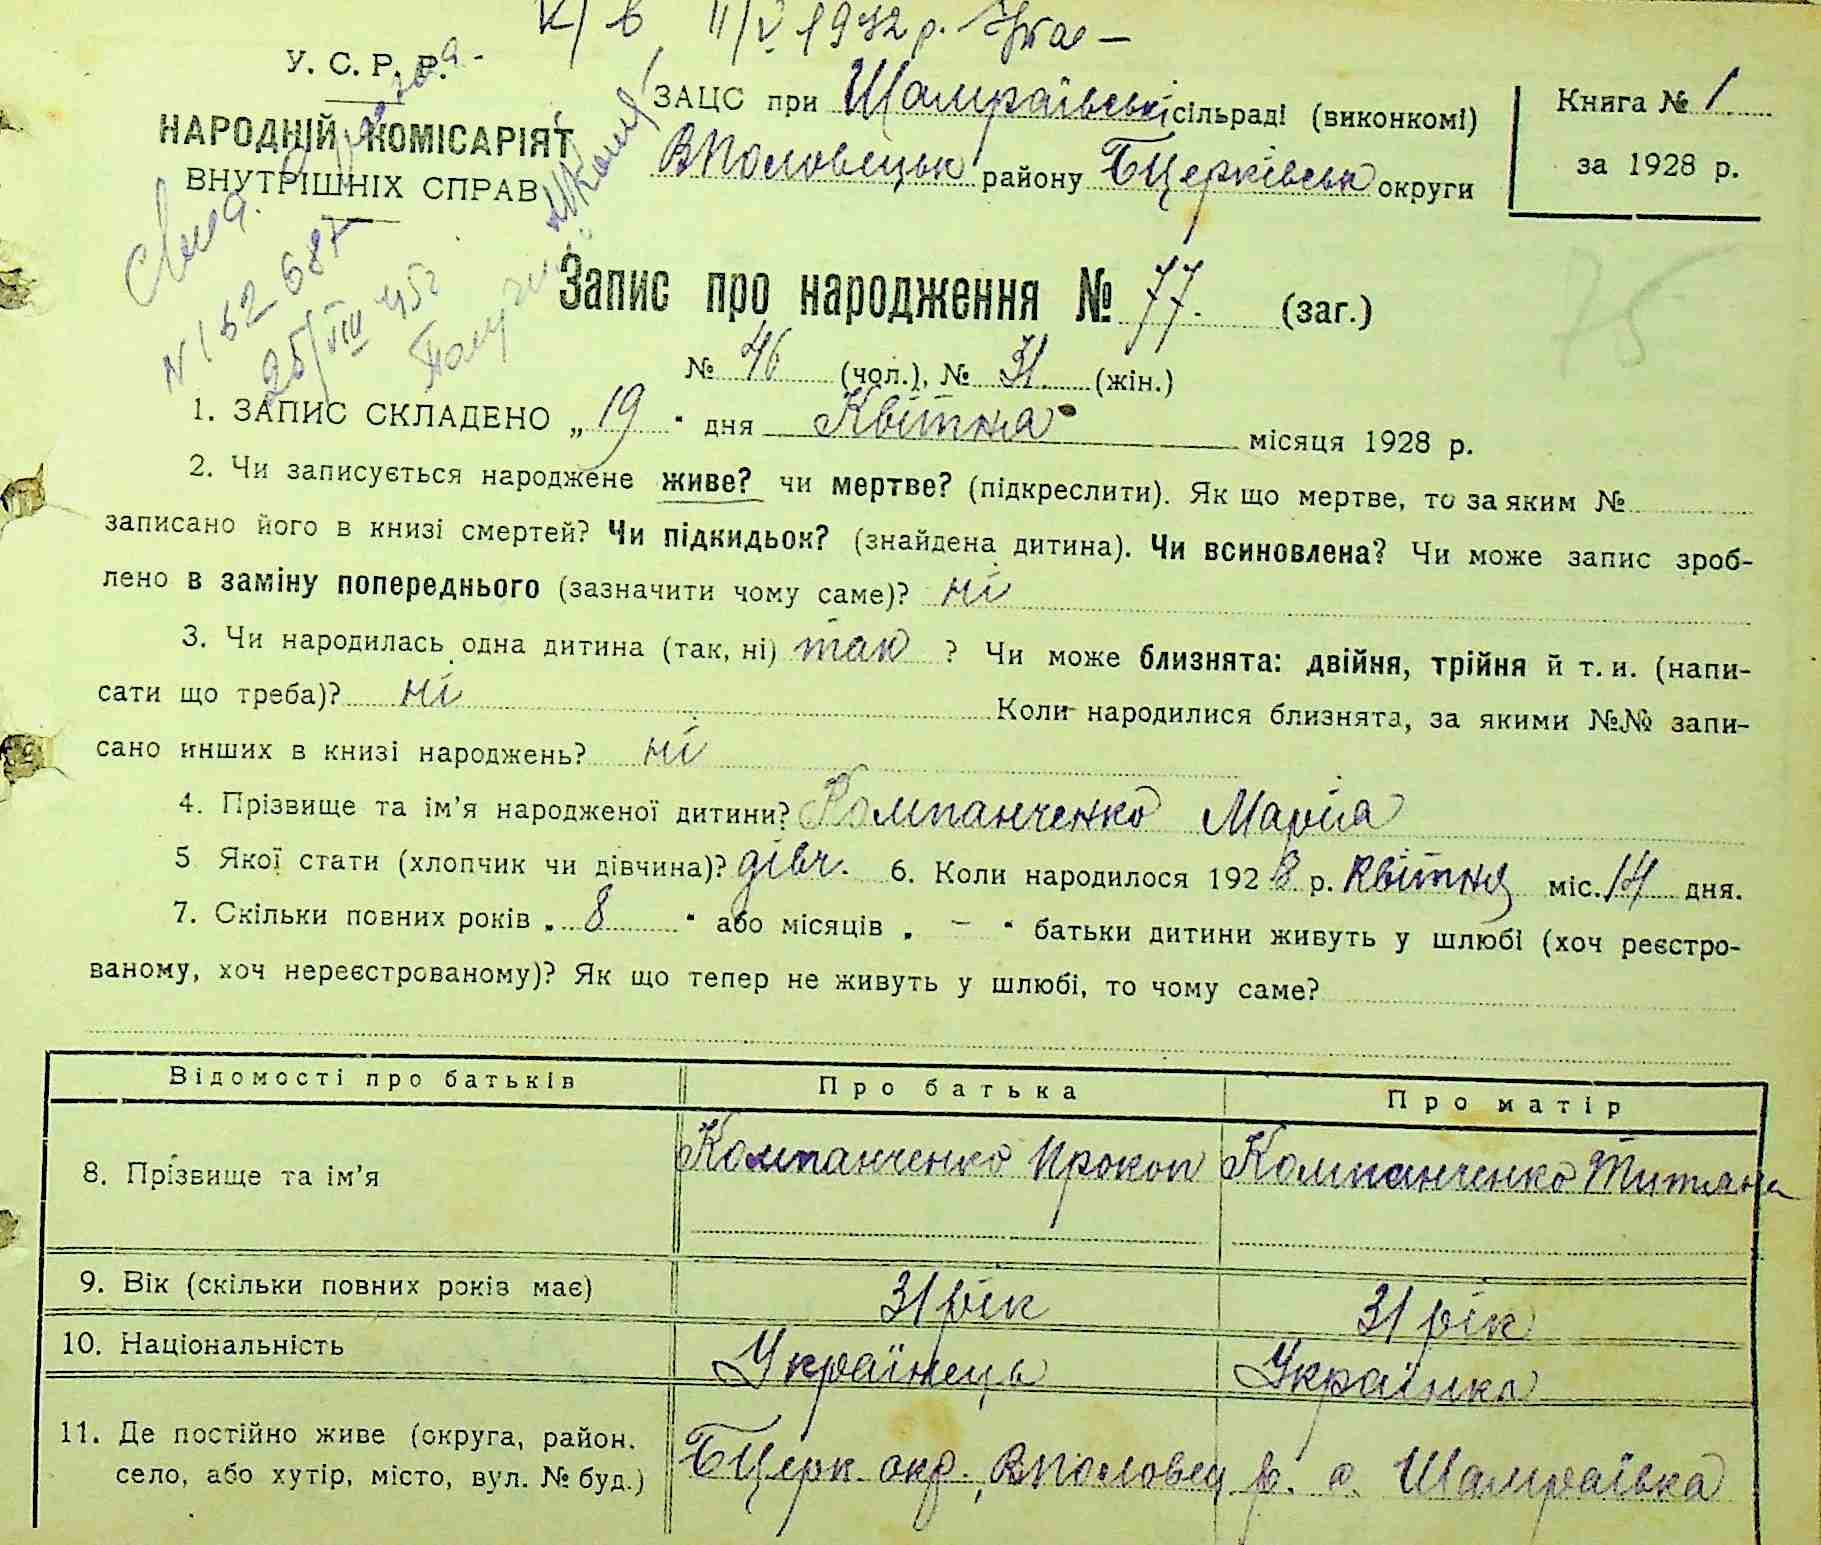 к/в 11/V 1972 р.
У. С. Р. Р.
НАРОДНІЙ КОМІСАРІЯТ
ВНУТРІШНІХ СПРАВ
N 152-687
25/VIII 45г
ЗАЦС при Шамраївській сільраді (виконкомі)
ВПоловецьк району БЦерківськ округи
Книга № 1
за 1928 р.
Запис про народження № 77. (заг.)
75
№ 46 (чол.), № 31. (жін.)
1. ЗАПИС СКЛАДЕНО „ 19 " дня Квітня місяця 1928 р.
2. Чи записується народжене живе? чи мертве? (підкреслити). Як що мертве, то за яким №
записано його в книзі смертей? Чи підкидьок? (знайдена дитина). Чи всиновлена? Чи може запис зроб-
лено в заміну попереднього (зазначити чому саме)? ні
3. Чи народилась одна дитина (так, ні) так ? Чи може близнята: двійня, трійня й т. и. (напи-
сати що треба)? ні Коли народилися близнята, за якими №№ запи-
сано инших в книзі народжень? ні
4. Прізвище та ім’я народженої дитини? Компанченко Марія
5 Якої стати (хлопчик чи дівчина)? дівч. 6. Коли народилося 1928 р. квітня міс. 14 дня.
7. Скільки повних років „ 8 " або місяців „ – " батьки дитини живуть у шлюбі (хоч реєстро-
ваному, хоч нереєстрованому)? Як що тепер не живуть у шлюбі, то чому саме?
Відомості про батьків Про батька Про матір
8. Прізвище та ім’я Компанченко Прокоп Компанченко Титяна
9. Вік (скільки повних років має) 31 рік 31 рік
10. Національність Українець Українка
11. Де постійно живе (округа, район.
село, або хутір, місто, вул. № буд.) БЦерк окр. ВПоловец р. с. Шамраївка